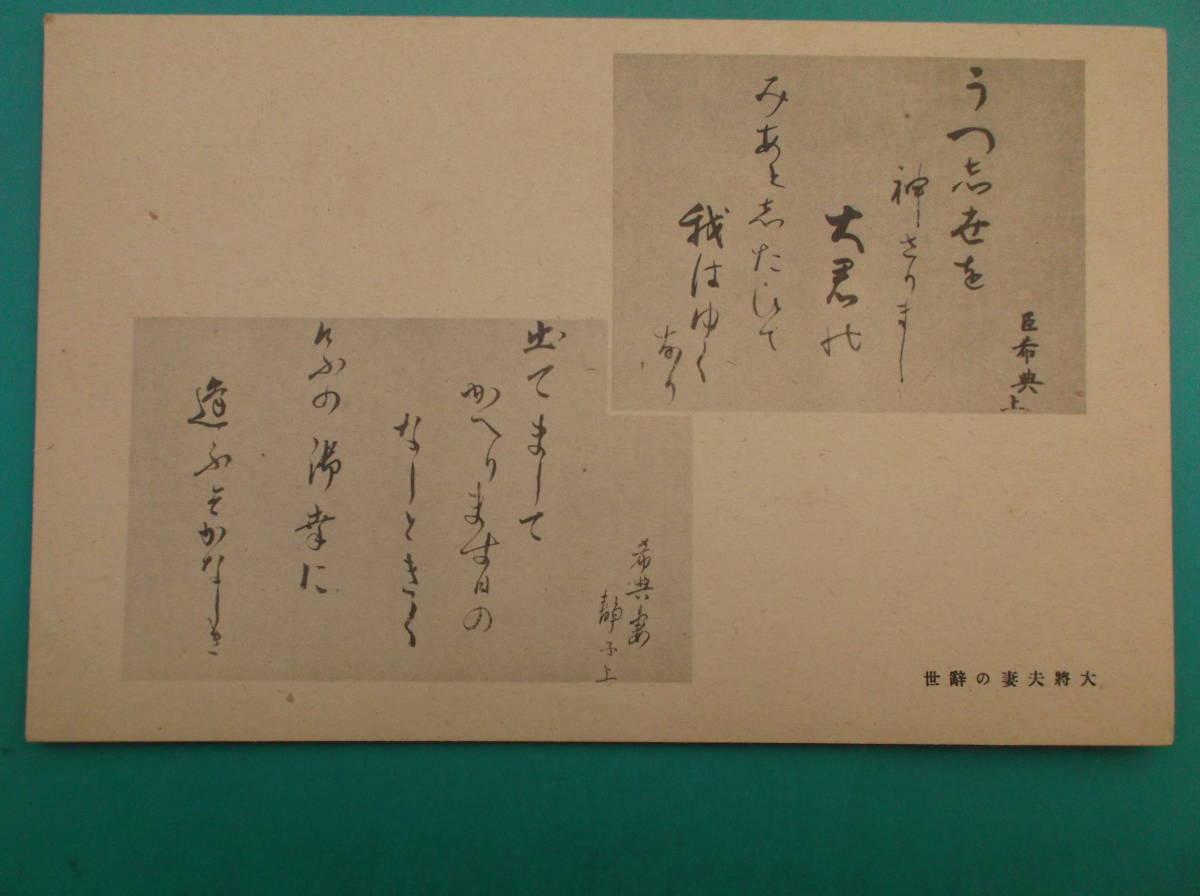 臣希典上
うつ志世を
神さりまし
大君の
みあと志たひて
我はゆくなり
希典妻
静子上
出てまして
かへります日の
なしときく
けふの御幸に
逢ふそかなしき
大將夫妻の辭世